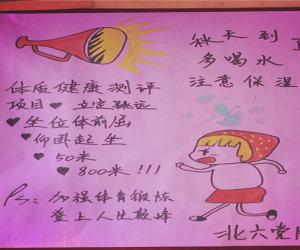 秋天到了
多喝水
注意保湿
体质健康测评
项目♥立定跳远
♥坐位体前屈
♥仰卧起坐
♥50米
♥800米!!!
Ps:加强体育锻炼
登上人生巅峰
北六党